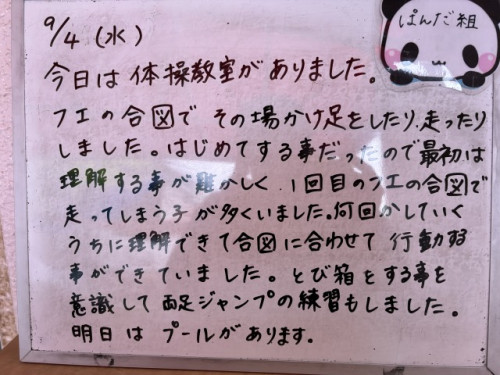 ぱんだ組
9/4 (水)
今日は体操教室がありました。
フエの合図で その場かけ足をしたり、走ったり
しました。はじめてする事だったので最初は
理解する事が難かしく、1回目のフエの合図で
走ってしまう子が多くいました。何回かしていく
うちに理解できて合図に合わせて 行動する
事ができていました。とび箱をする事を
意識して両足ジャンプの練習もしました。
明日は プールがあります。